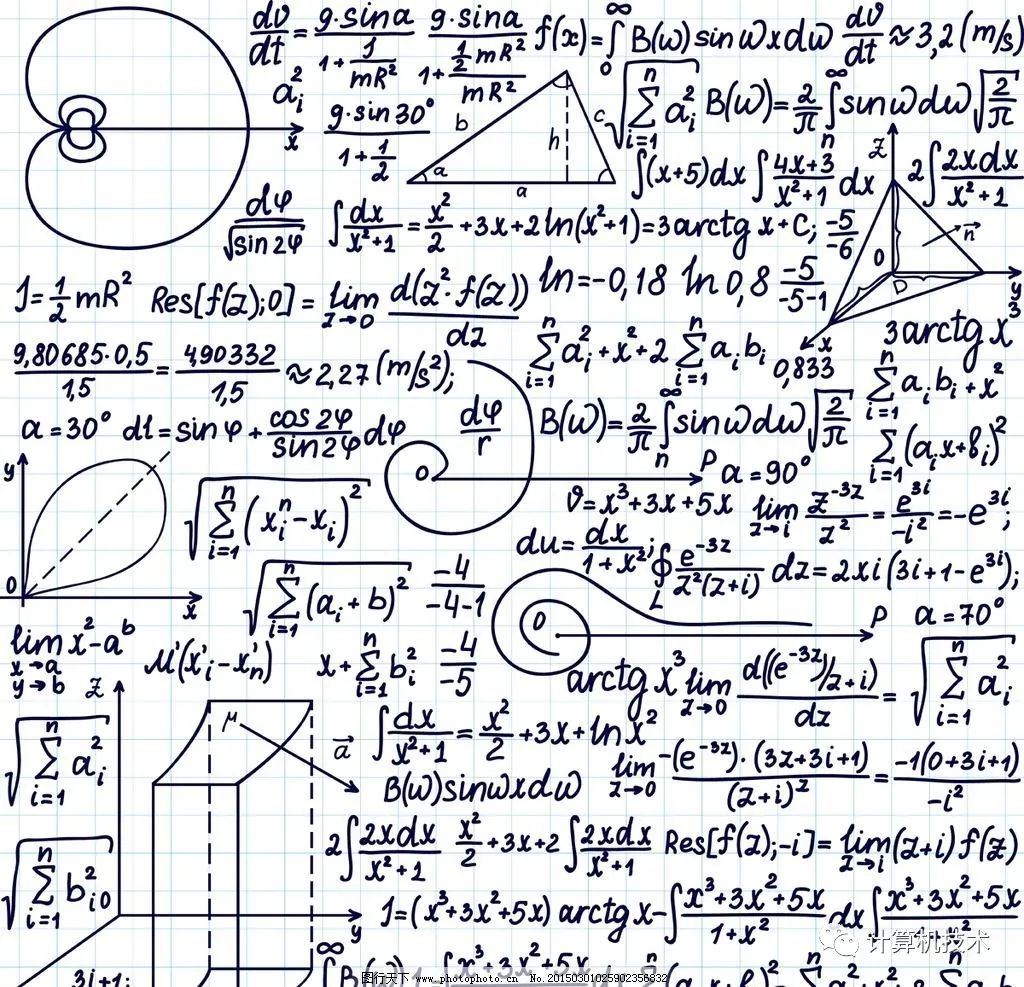 dv/dt = g·sinα/(1+1/mR²) g·sinα/(1+½mR²/mR²) f(x)=∫₀^∞ B(ω)sinωxdω dv/dt≈3,2(m/s)
a_i²
g·sin30°/(1+1/2) b h c α a √(∑_{i=1}^n a_i²) B(ω)=2/π ∫_n^∞ sinωdω√(2/π)
x
∫(x+5)dx ∫(4x+3)/(x²+1) dx z 2∫2xdx/(x²+1)
dφ/√sin2φ ∫dx/(x²+1)=x²/2+3x+2ln(x²+1)=3arctgx+C; -5/-6 n⃗
0 D y
J=½mR² Res[f(z);0]=lim_{z→0} d(z²·f(z))/dz ln=-0,18 ln0,8 -5/(-5-1)
x 3arctgx³
9,80685·0,5/1,5=4,90332/1,5≈2,27(m/s²); ∑_{i=1}^n a_i²+x²+2∑_{i=1}^n a_i b_i 0,833 ∑_{i=1}^n a_i b_i+x²
a=30° dl=sinφ+cos2φ/sin2φ dφ dφ/r B(ω)=2/π ∫_n^∞ sinωdω√(2/π) ∑_{i=1}(a_i x+b_i)²
y 0 P a=90°
√(∑_{i=1}^n(x_i^n-x_i)²) v=x³+3x+5x lim_{z→i} z^{-3z}/z²=e^{3i}/-i²=-e^{3i};
du=dx/(1+x²); ∮_L e^{-3z}/(z²(z+i)) dz=2xi(3i+1-e^{3i});
0 x √(∑_{i=1}^n(a_i+b)²) -4/(-4-1) 0 P a=70°
lim_{x→a y→b} x²-a^b M'(x'_i-x'_n) x+∑_{i=1}^n b_i² -4/-5
arctgx³ lim_{z→0} d((e^{-3z})/z+i)/dz=√(∑_{i=1}^n a_i²)
z μ a⃗ ∫dx/(x²+1)=x²/2+3x+lnx²
√(∑_{i=1}^n a_i²) B(ω)sinωxdω lim_{z→0} -(e^{-3z})·(3z+3i+1)/(z+i)²=-1(0+3i+1)/-i²
2∫2xdx/(x²+1) x²/2+3x+2∫2xdx/(x²+1) Res[f(z);-i]=lim_{z→i}(z+i)f(z)
√(∑_{i=1}^n b_{i0}²) J=(x³+3x²+5x)arctgx-∫(x³+3x²+5x)/(1+x²)dx∫x³+3x²+5x
y 计算机技术
3i+1;
图行天下 www.photophoto.cn No.20150301025902356832